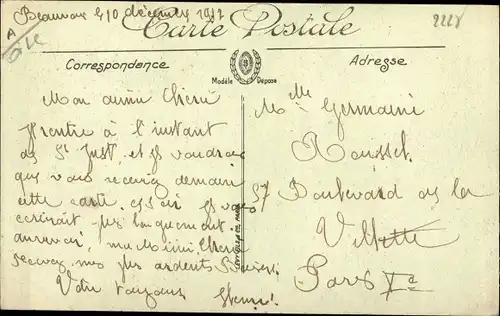 Beauvais le 10 décembre 1917
2228
A
Carte Postale
Correspondance
Modèle Déposé
Adresse
Mon amie Chérie
Je rentre à l'instant
de St Just, et je voudrais
que vous receviez demain
cette carte. Ce soir je vous
écrirait plus longuement
au revoir, ma Mimi, Chérie
recevez mes plus ardents Baisers
Votre toujours
Mlle Germaine
Roussel
57 Boulevard de la
Villette
Paris Xe